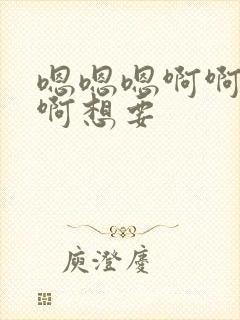 嗯嗯嗯啊啊
啊想要
庾澄庆